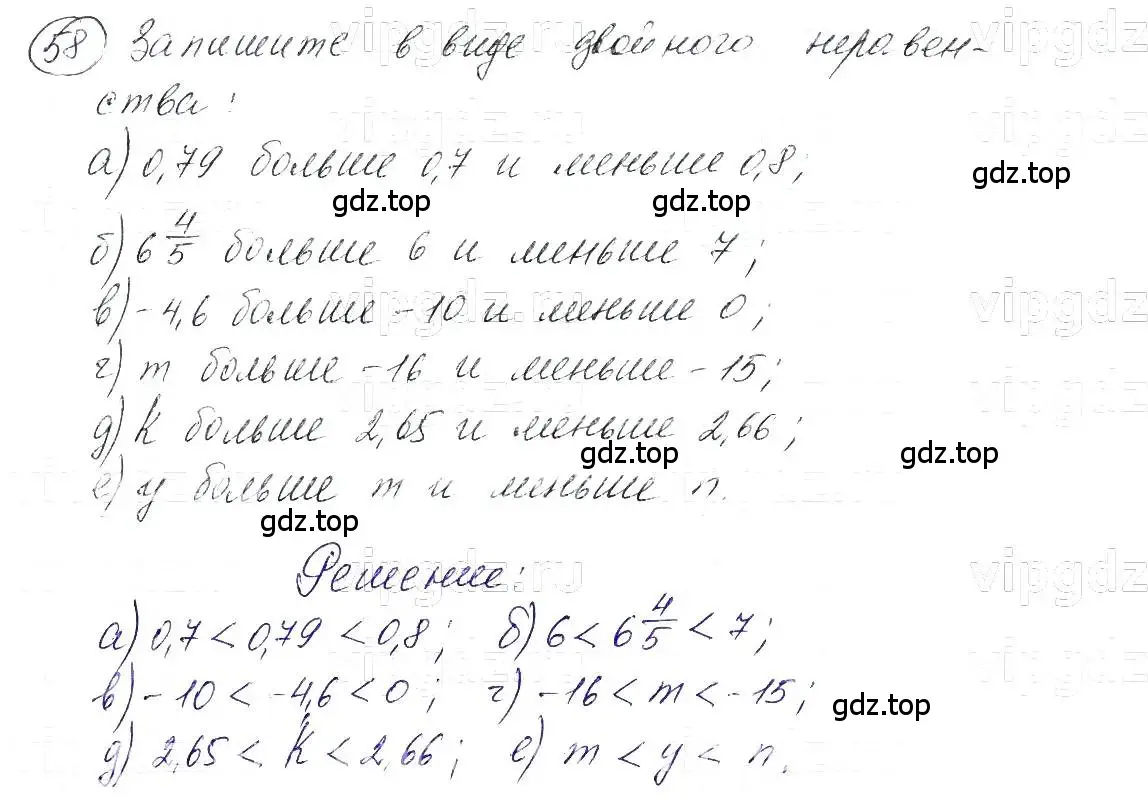 58 Запишите в виде двойного неравен-
ства:
а) 0,79 больше 0,7 и меньше 0,8;
б) 6 4/5 больше 6 и меньше 7;
в) -4,6 больше -10 и меньше 0;
г) m больше -16 и меньше -15;
д) k больше 2,65 и меньше 2,66;
е) y больше m и меньше n.
Решение:
а) 0,7 < 0,79 < 0,8; б) 6 < 6 4/5 < 7;
в) -10 < -4,6 < 0; г) -16 < m < -15;
д) 2,65 < k < 2,66; е) m < y < n.
gdz.top
gdz.top
gdz.top
gdz.top
gdz.top
gdz.top
gdz.top
vipgdz.ru
vipgdz
vipgdz.ru
vipgdz.ru
vipgdz
vipgdz.ru
vipgdz